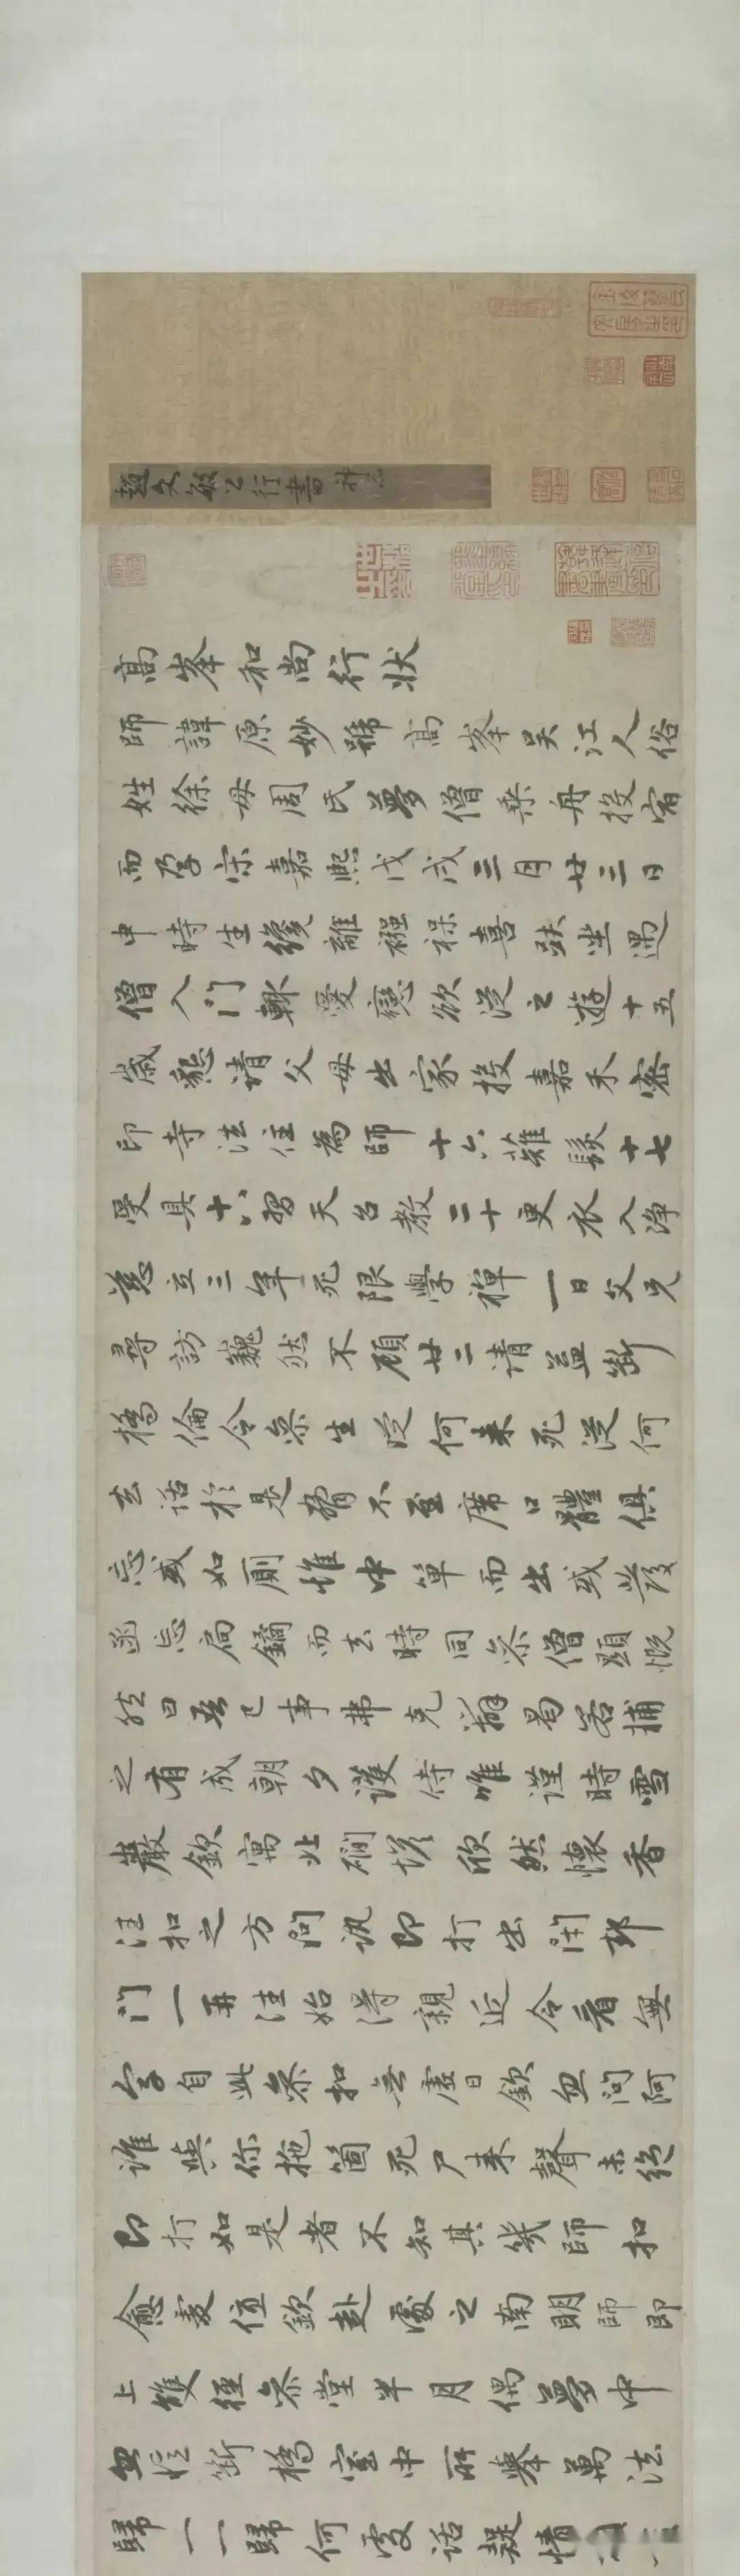 趙文敏公行書
高峯和尚行狀
師諱原妙號高峯吴江人俗
姓徐母周氏夢僧乘舟投宿
而孕宋嘉熙戊戌三月廿三日
申時生纔離襁褓喜趺坐遇
僧入門輙愛戀欲從之遊十五
歲懇請父母出家投嘉禾密
印寺法住為師十六薙髮十七
受具十八習天台教二十更衣入淨
慈立三年死限學禪一日父兄
尋訪巍然不顧廿二請益斷
橋倫令叅生從何来死從何
去話於是脅不至席口體俱
忘或如廁惟中單而出或發
函忘扃鐍而去時同叅僧顯慨
然曰吾己事弗克辦曷若輔
之有成朝夕護侍唯謹時雪
巖欽寓北磵塔欣然懷香
往扣之方問訊即打出閉却
門一再往始得親近令看無
字自此叅扣無虛日欽忽問阿
誰與你拖箇死尸来聲未絶
即打如是者不知其幾師扣
愈虔值欽赴處之南明師即
上雙徑叅堂半月偶夢中
忽憶斷橋室中所舉萬法
歸一一歸何處話疑情